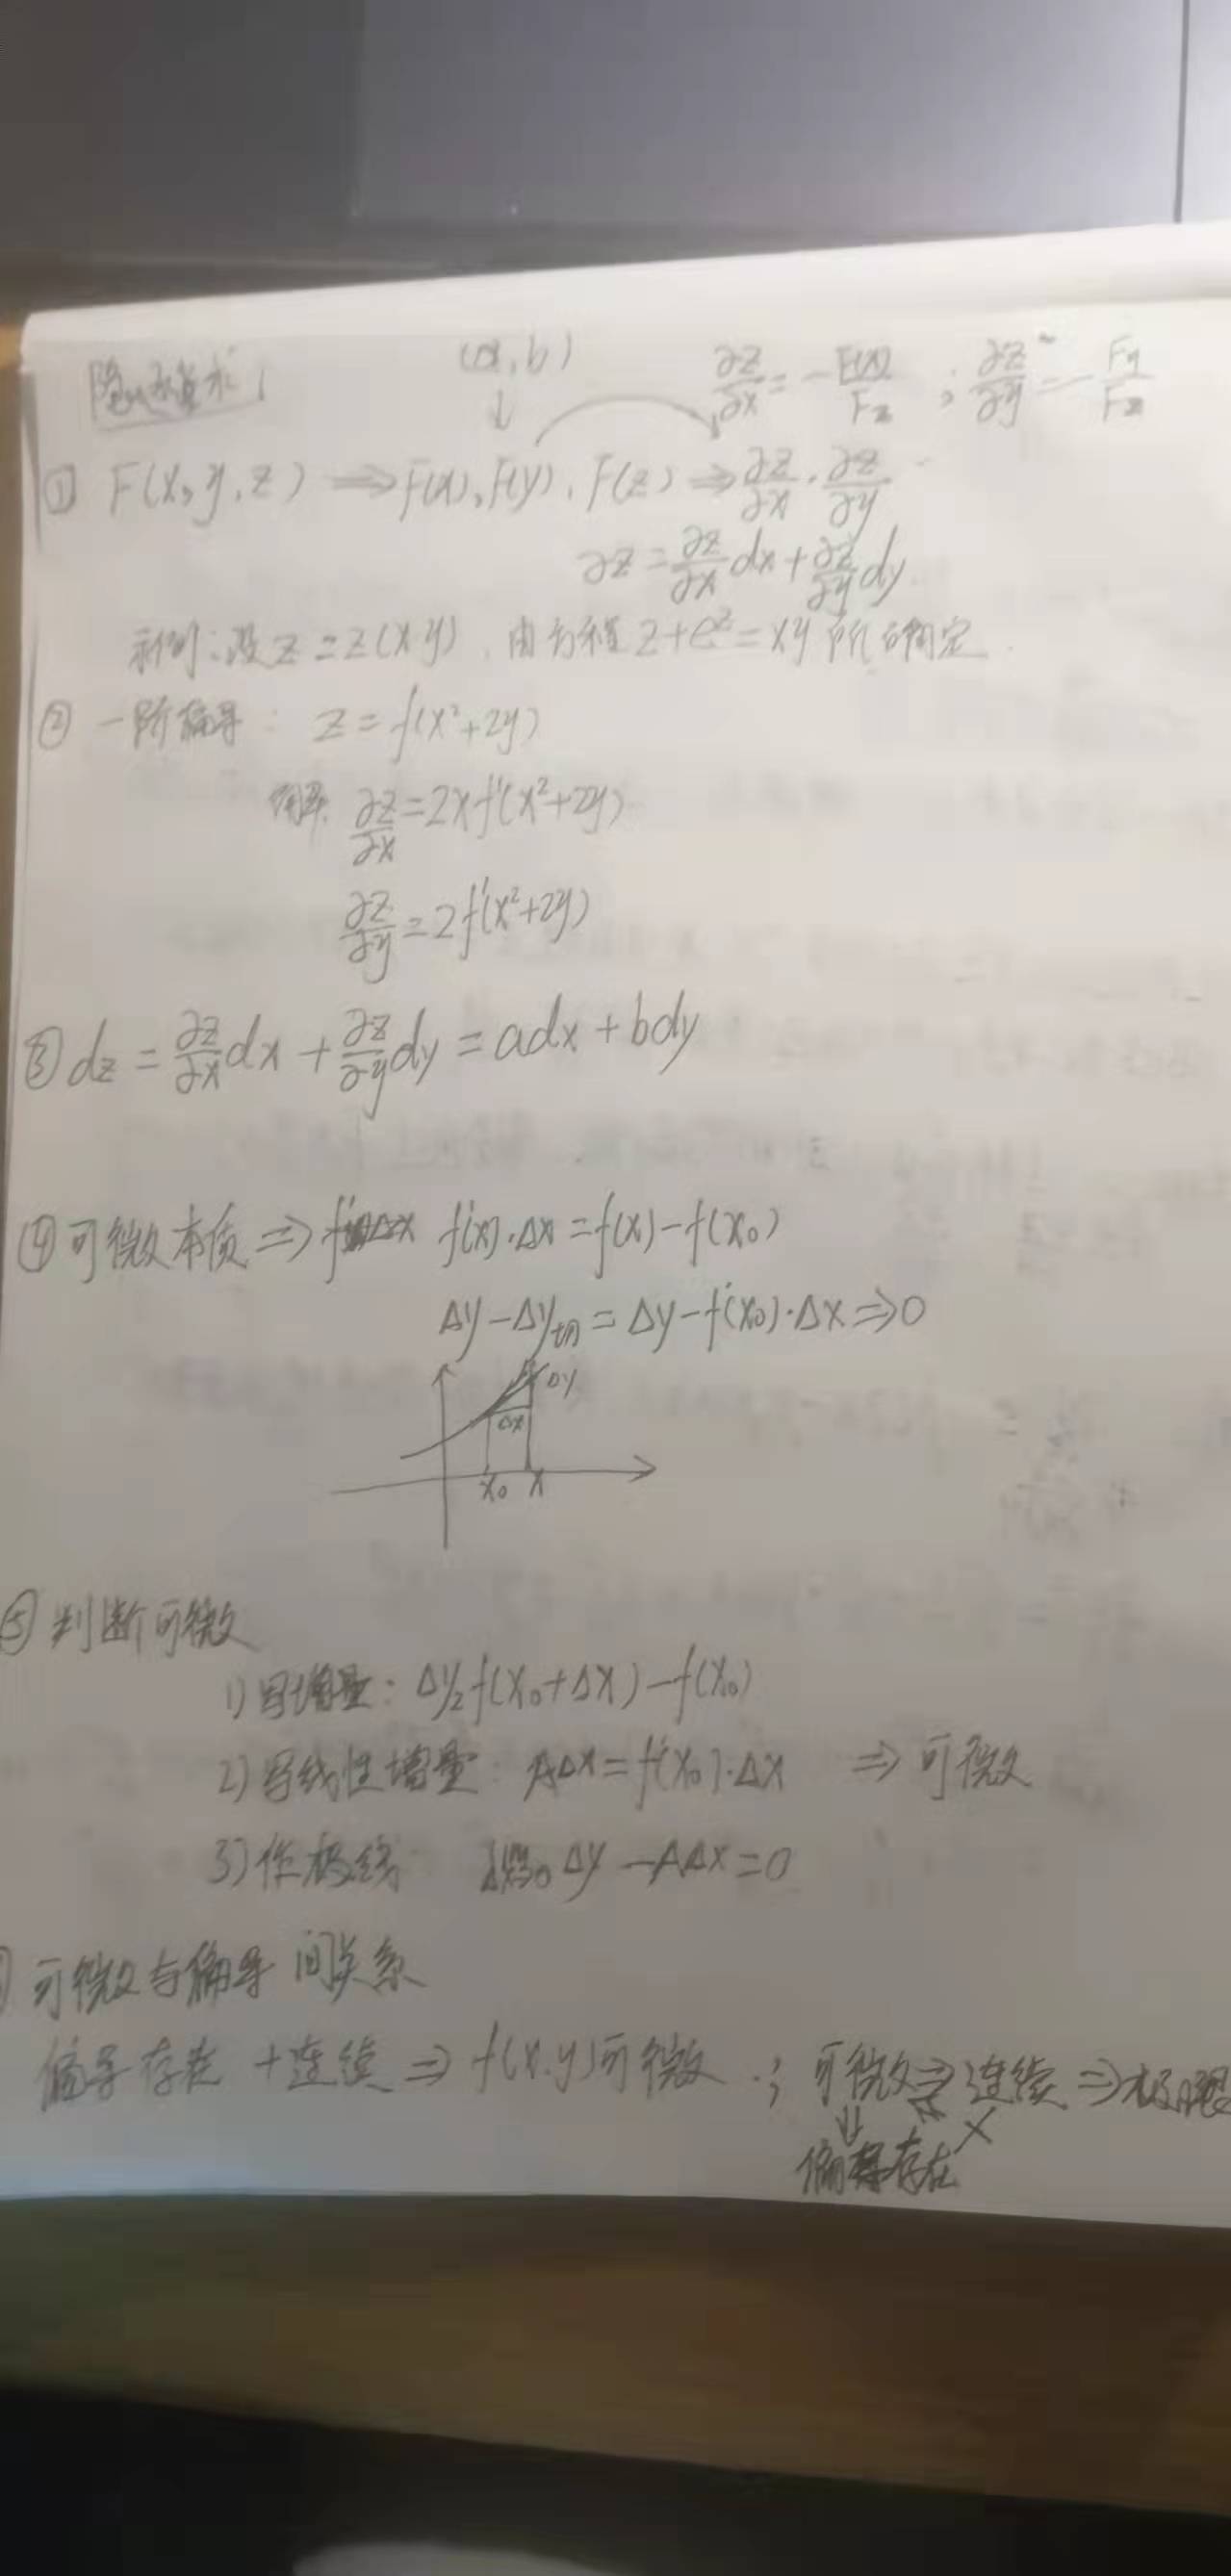 (a,b)
↓
∂z/∂x = -F(x)/Fz ; ∂z/∂y = -Fy/Fz
① F(x,y,z) ⇒ F(x), F(y), F(z) ⇒ ∂z/∂x, ∂z/∂y
∂z = ∂z/∂x dx + ∂z/∂y dy
设 z=z(x y), 由方程 z+e^z=xy 所确定.
② 一阶偏导: z=f(x²+2y)
解: ∂z/∂x = 2xf'(x²+2y)
∂z/∂y = 2f'(x²+2y)
③ dz = ∂z/∂x dx + ∂z/∂y dy = adx + bdy
④ 可微本质 ⇒ f'(x)·Δx = f(x)-f(x₀)
Δy-Δy切 = Δy-f'(x₀)·Δx ⇒ 0
Δy
Δx
x₀ x
⑤ 判断可微
1) 写增量: Δy= f(x₀+Δx)-f(x₀)
2) 写线性增量: AΔx=f'(x₀)·Δx ⇒ 可微
3) 作极 Δy-AΔx=0
可微与偏导间关系
偏导存在 + 连续 ⇒ f(x.y)可微 ; 可微 ⇒ 连续 ⇒ 极限
⇓ ×
偏导存在